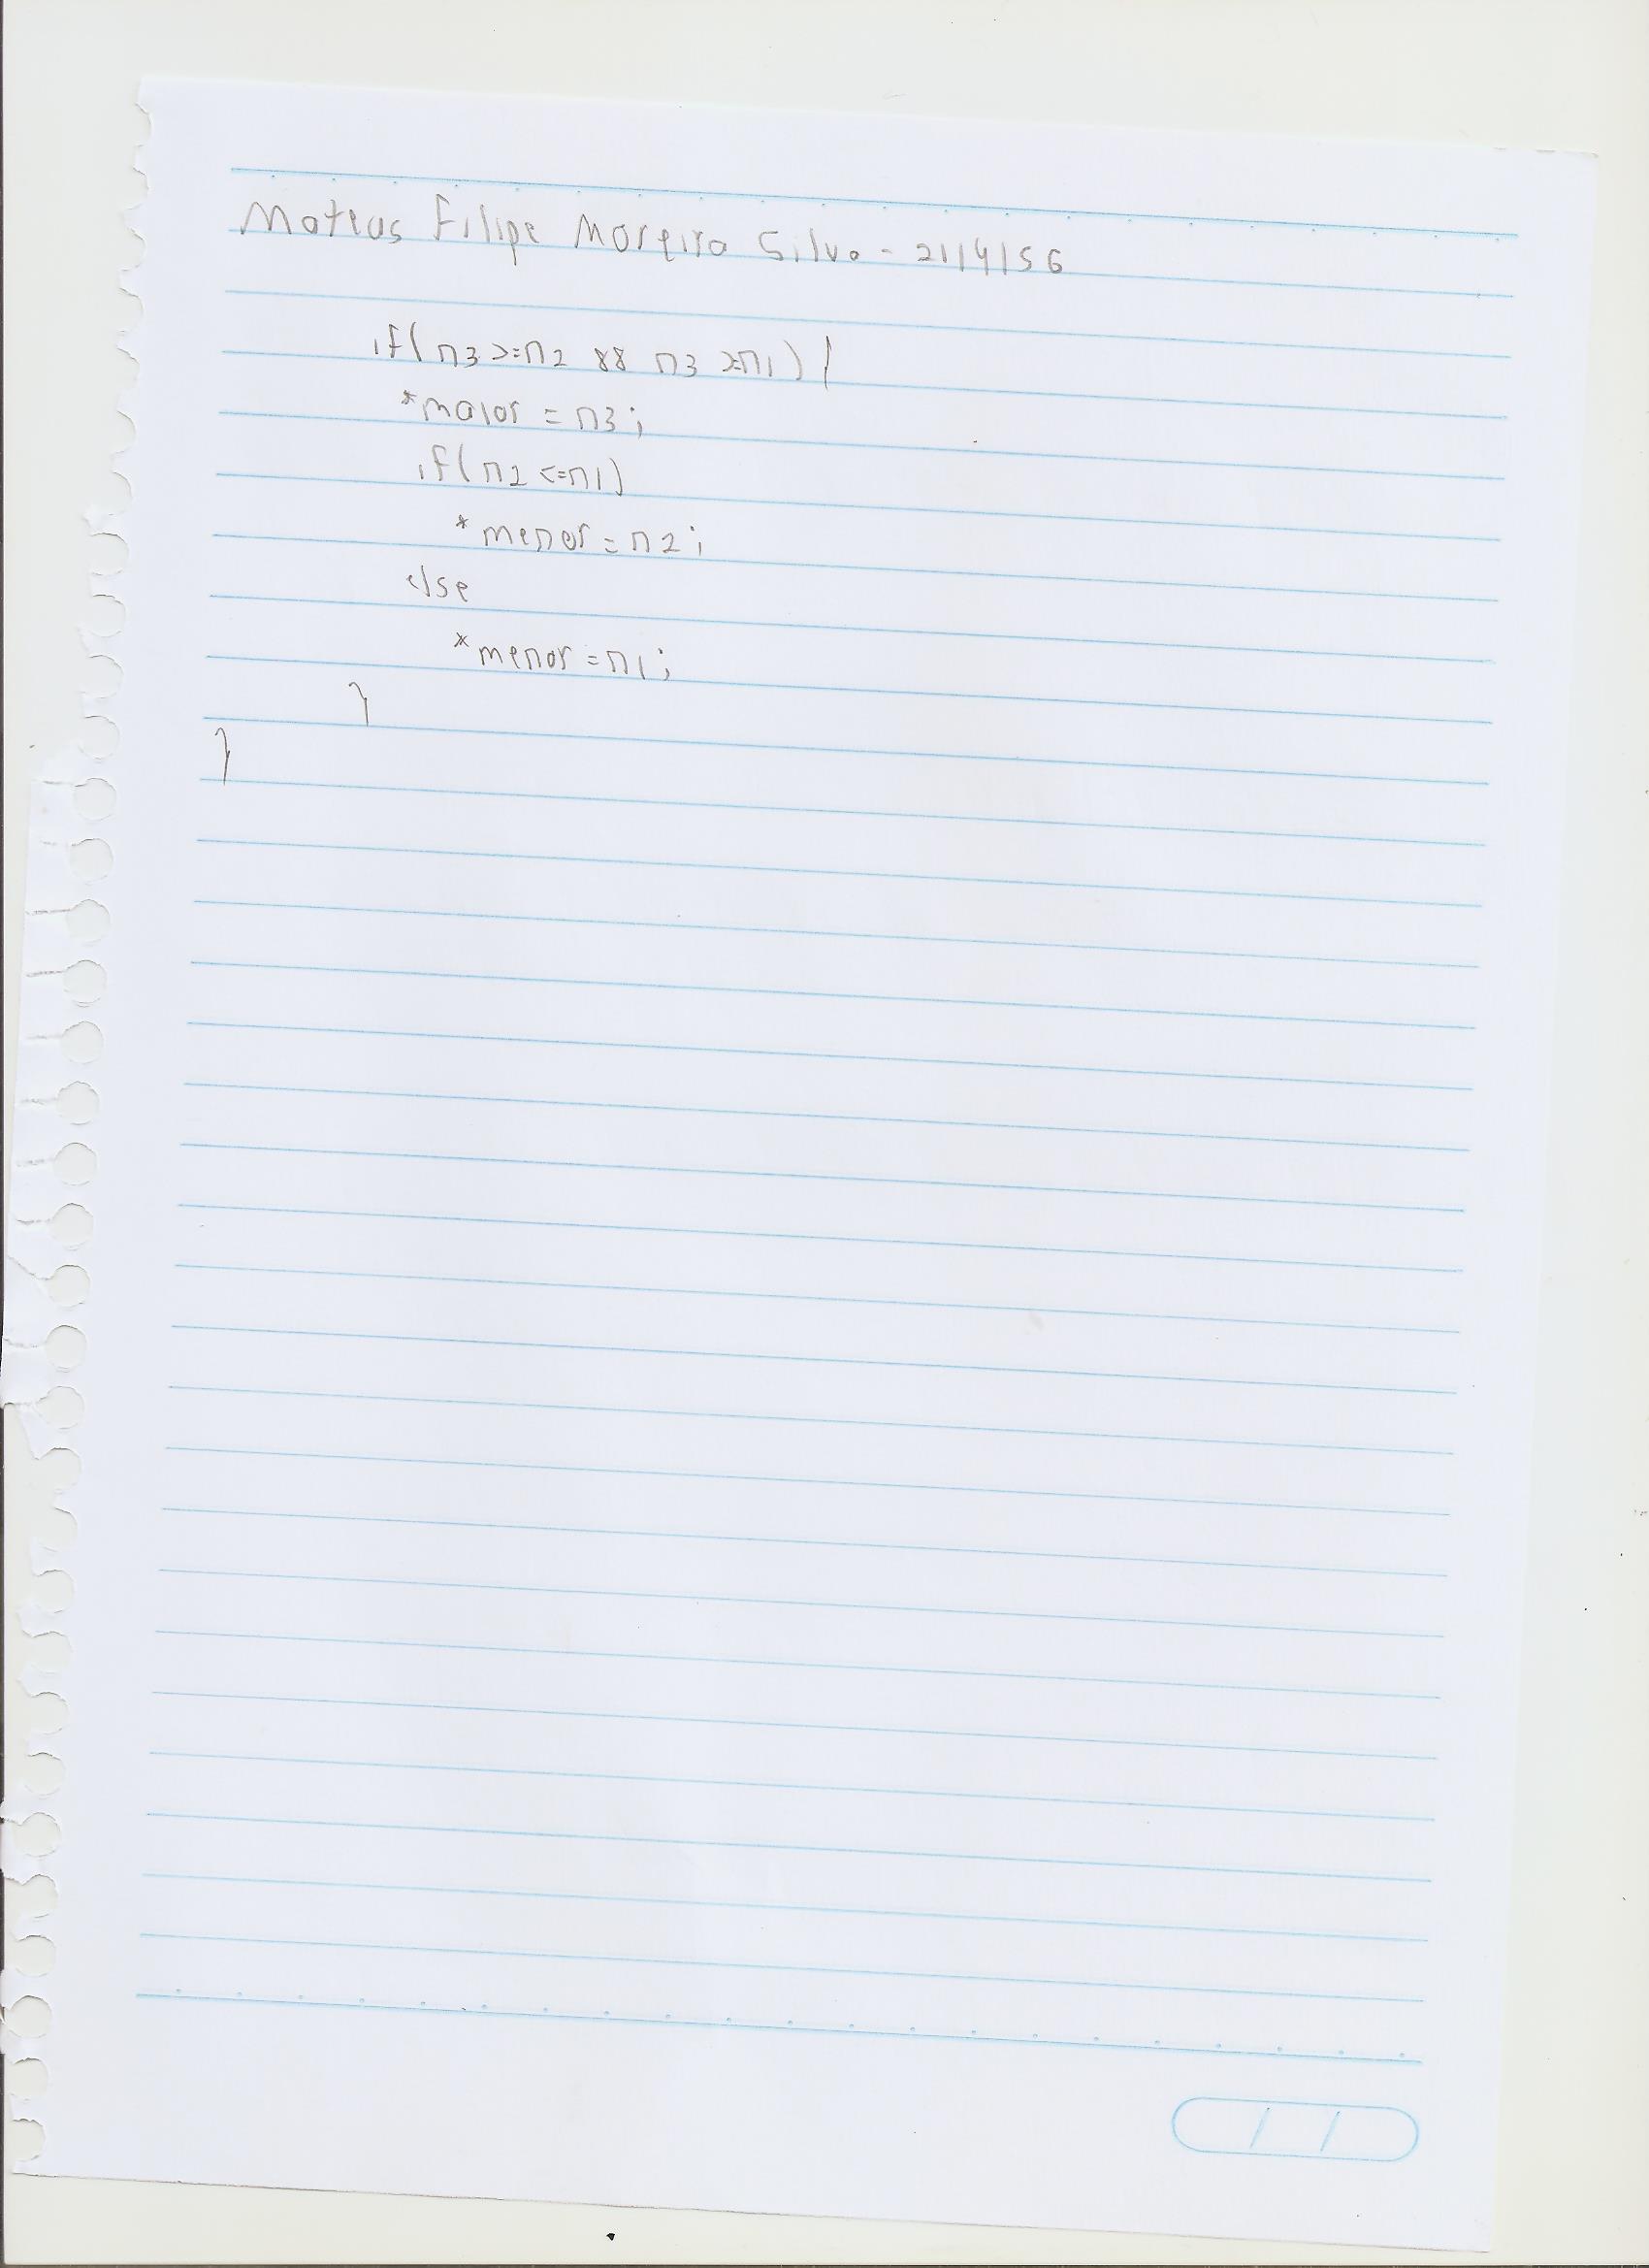 Mateus Filipe Moreira Silva - 2114156
if(n3>=n2 && n3>=n1){
*maior = n3;
if(n2<=n1)
*menor=n2;
else
*menor=n1;
}
}
/ /